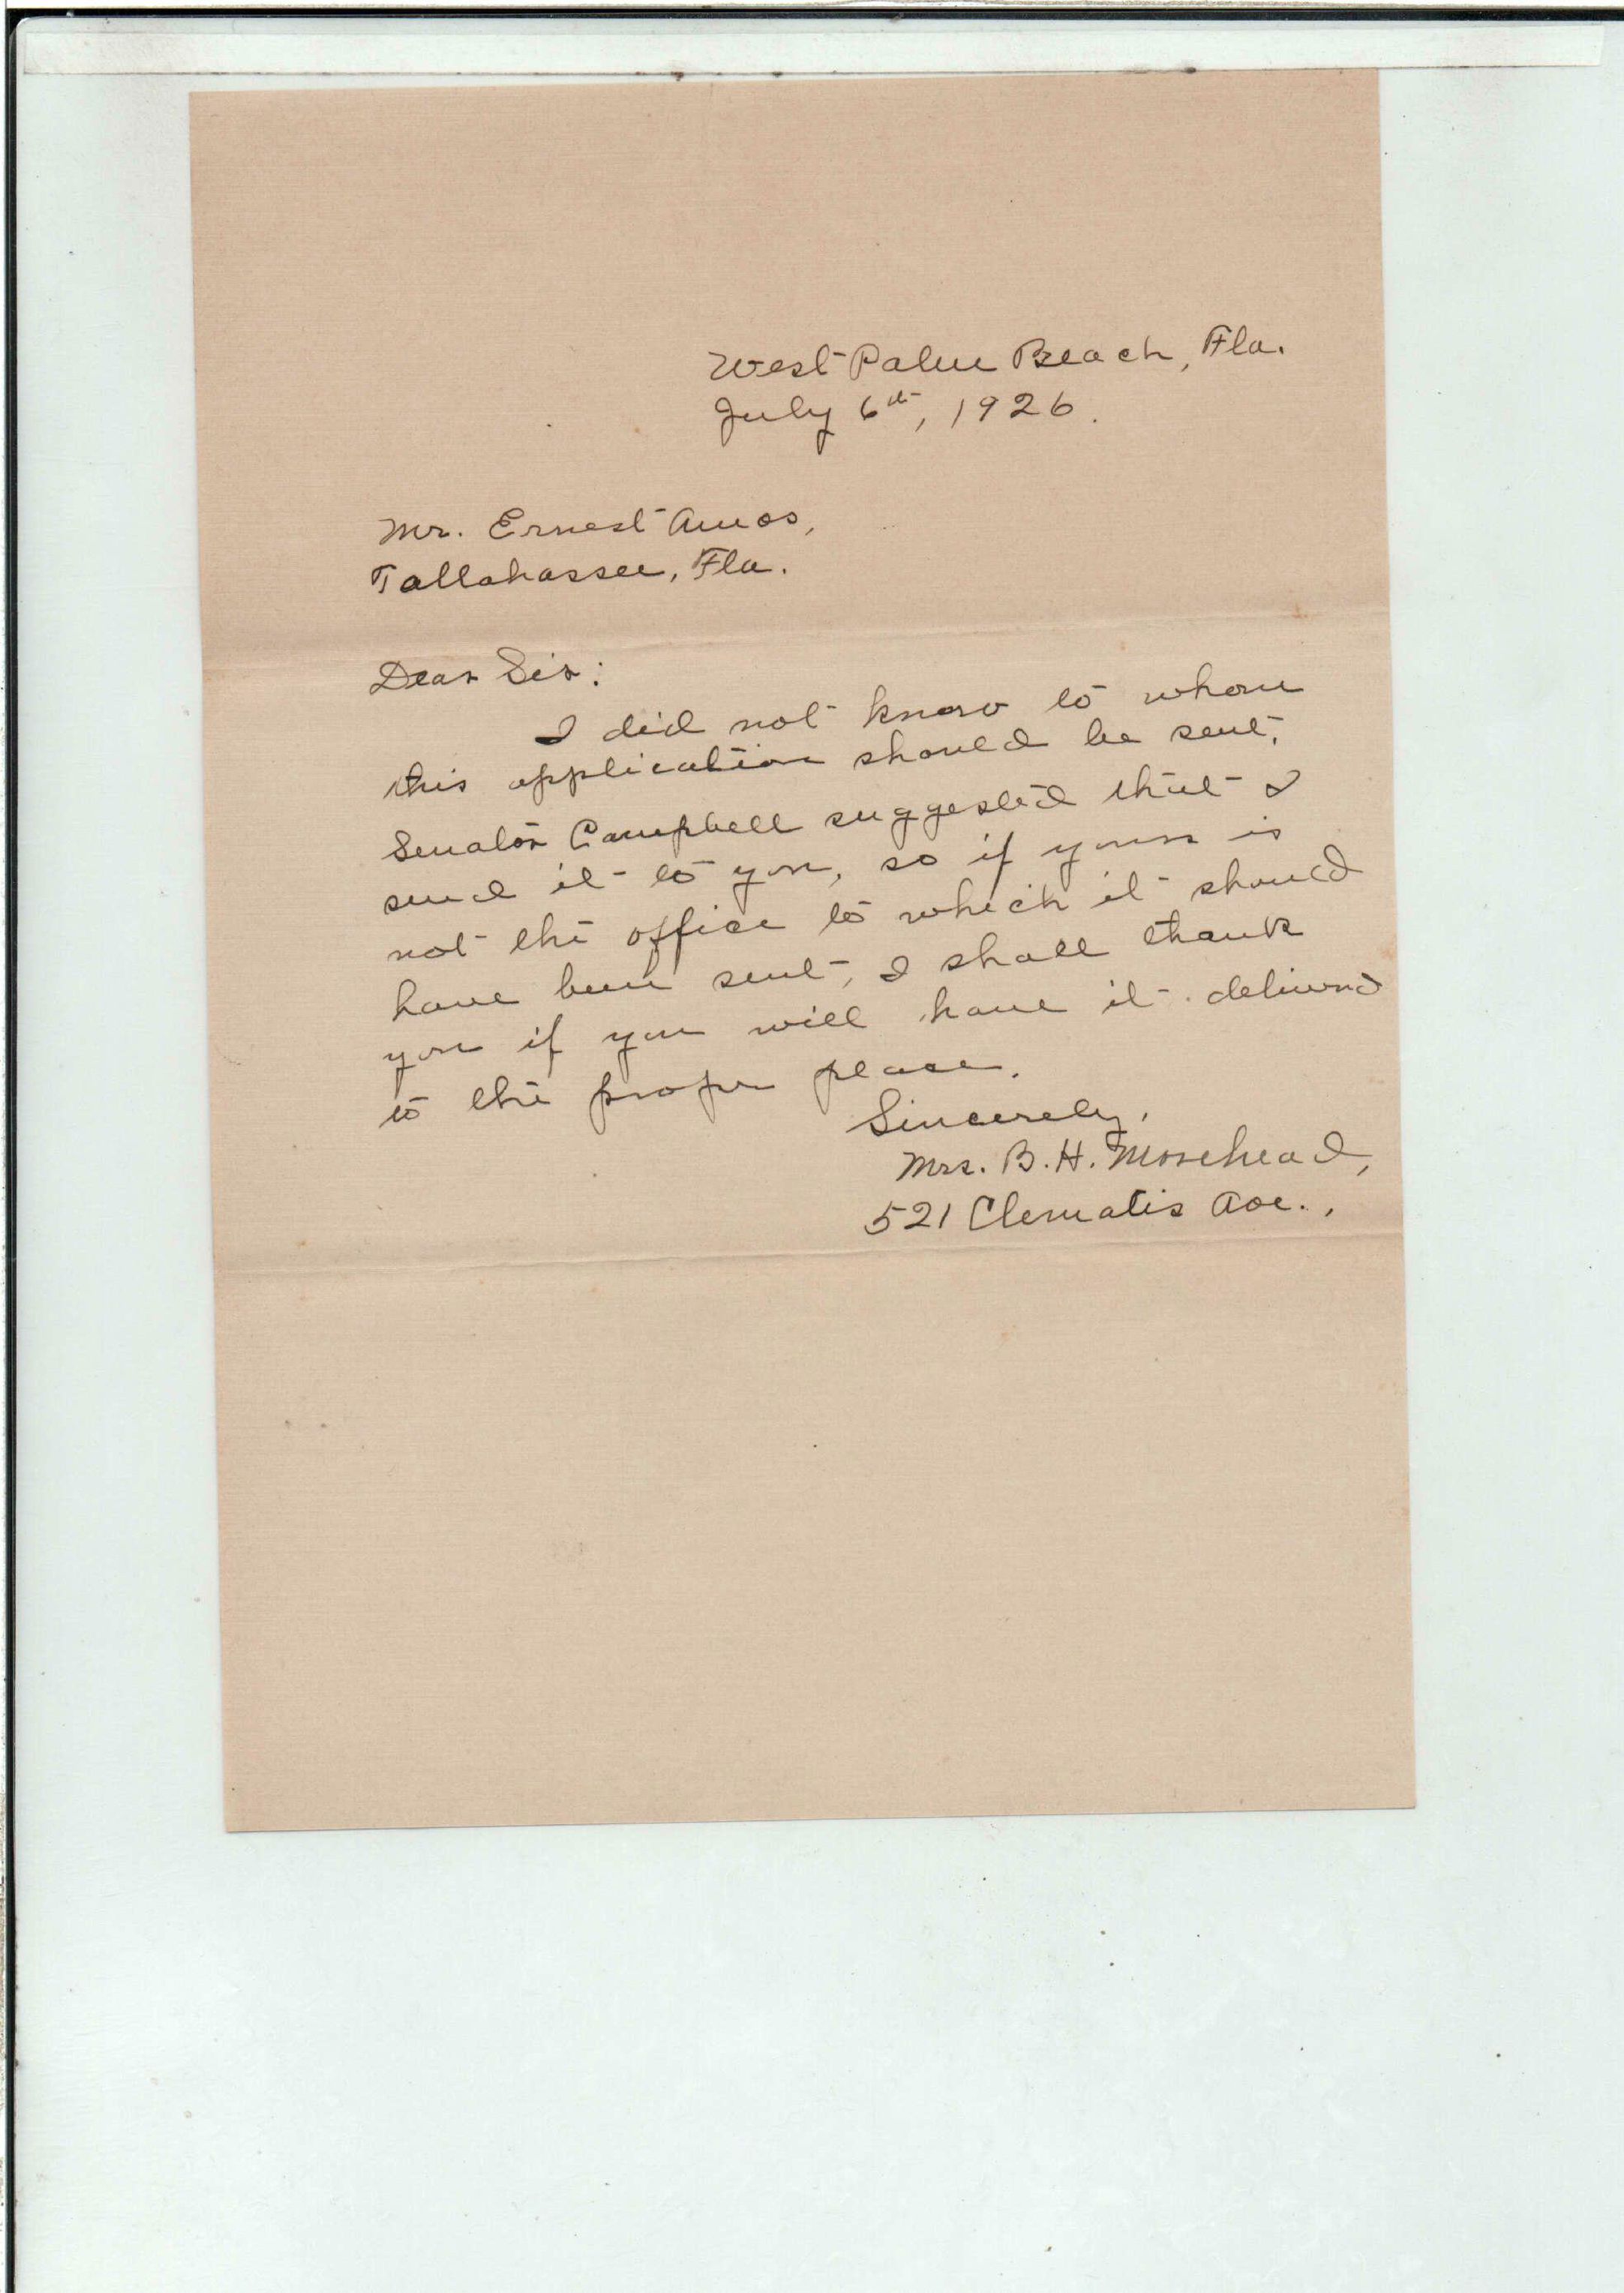 West Palm Beach, Fla.
July 6th, 1926.
Mr. Ernest Amos,
Tallahassee, Fla.
Dear Sir:
I did not know to whom
this application should be sent.
Senator Campbell suggested that I
send it to you, so if yours is
not the office to which it should
have been sent, I shall thank
you if you will have it delivered
to the proper place.
Sincerely,
Mrs. B. H. Morehead,
521 Clematis Ave.,